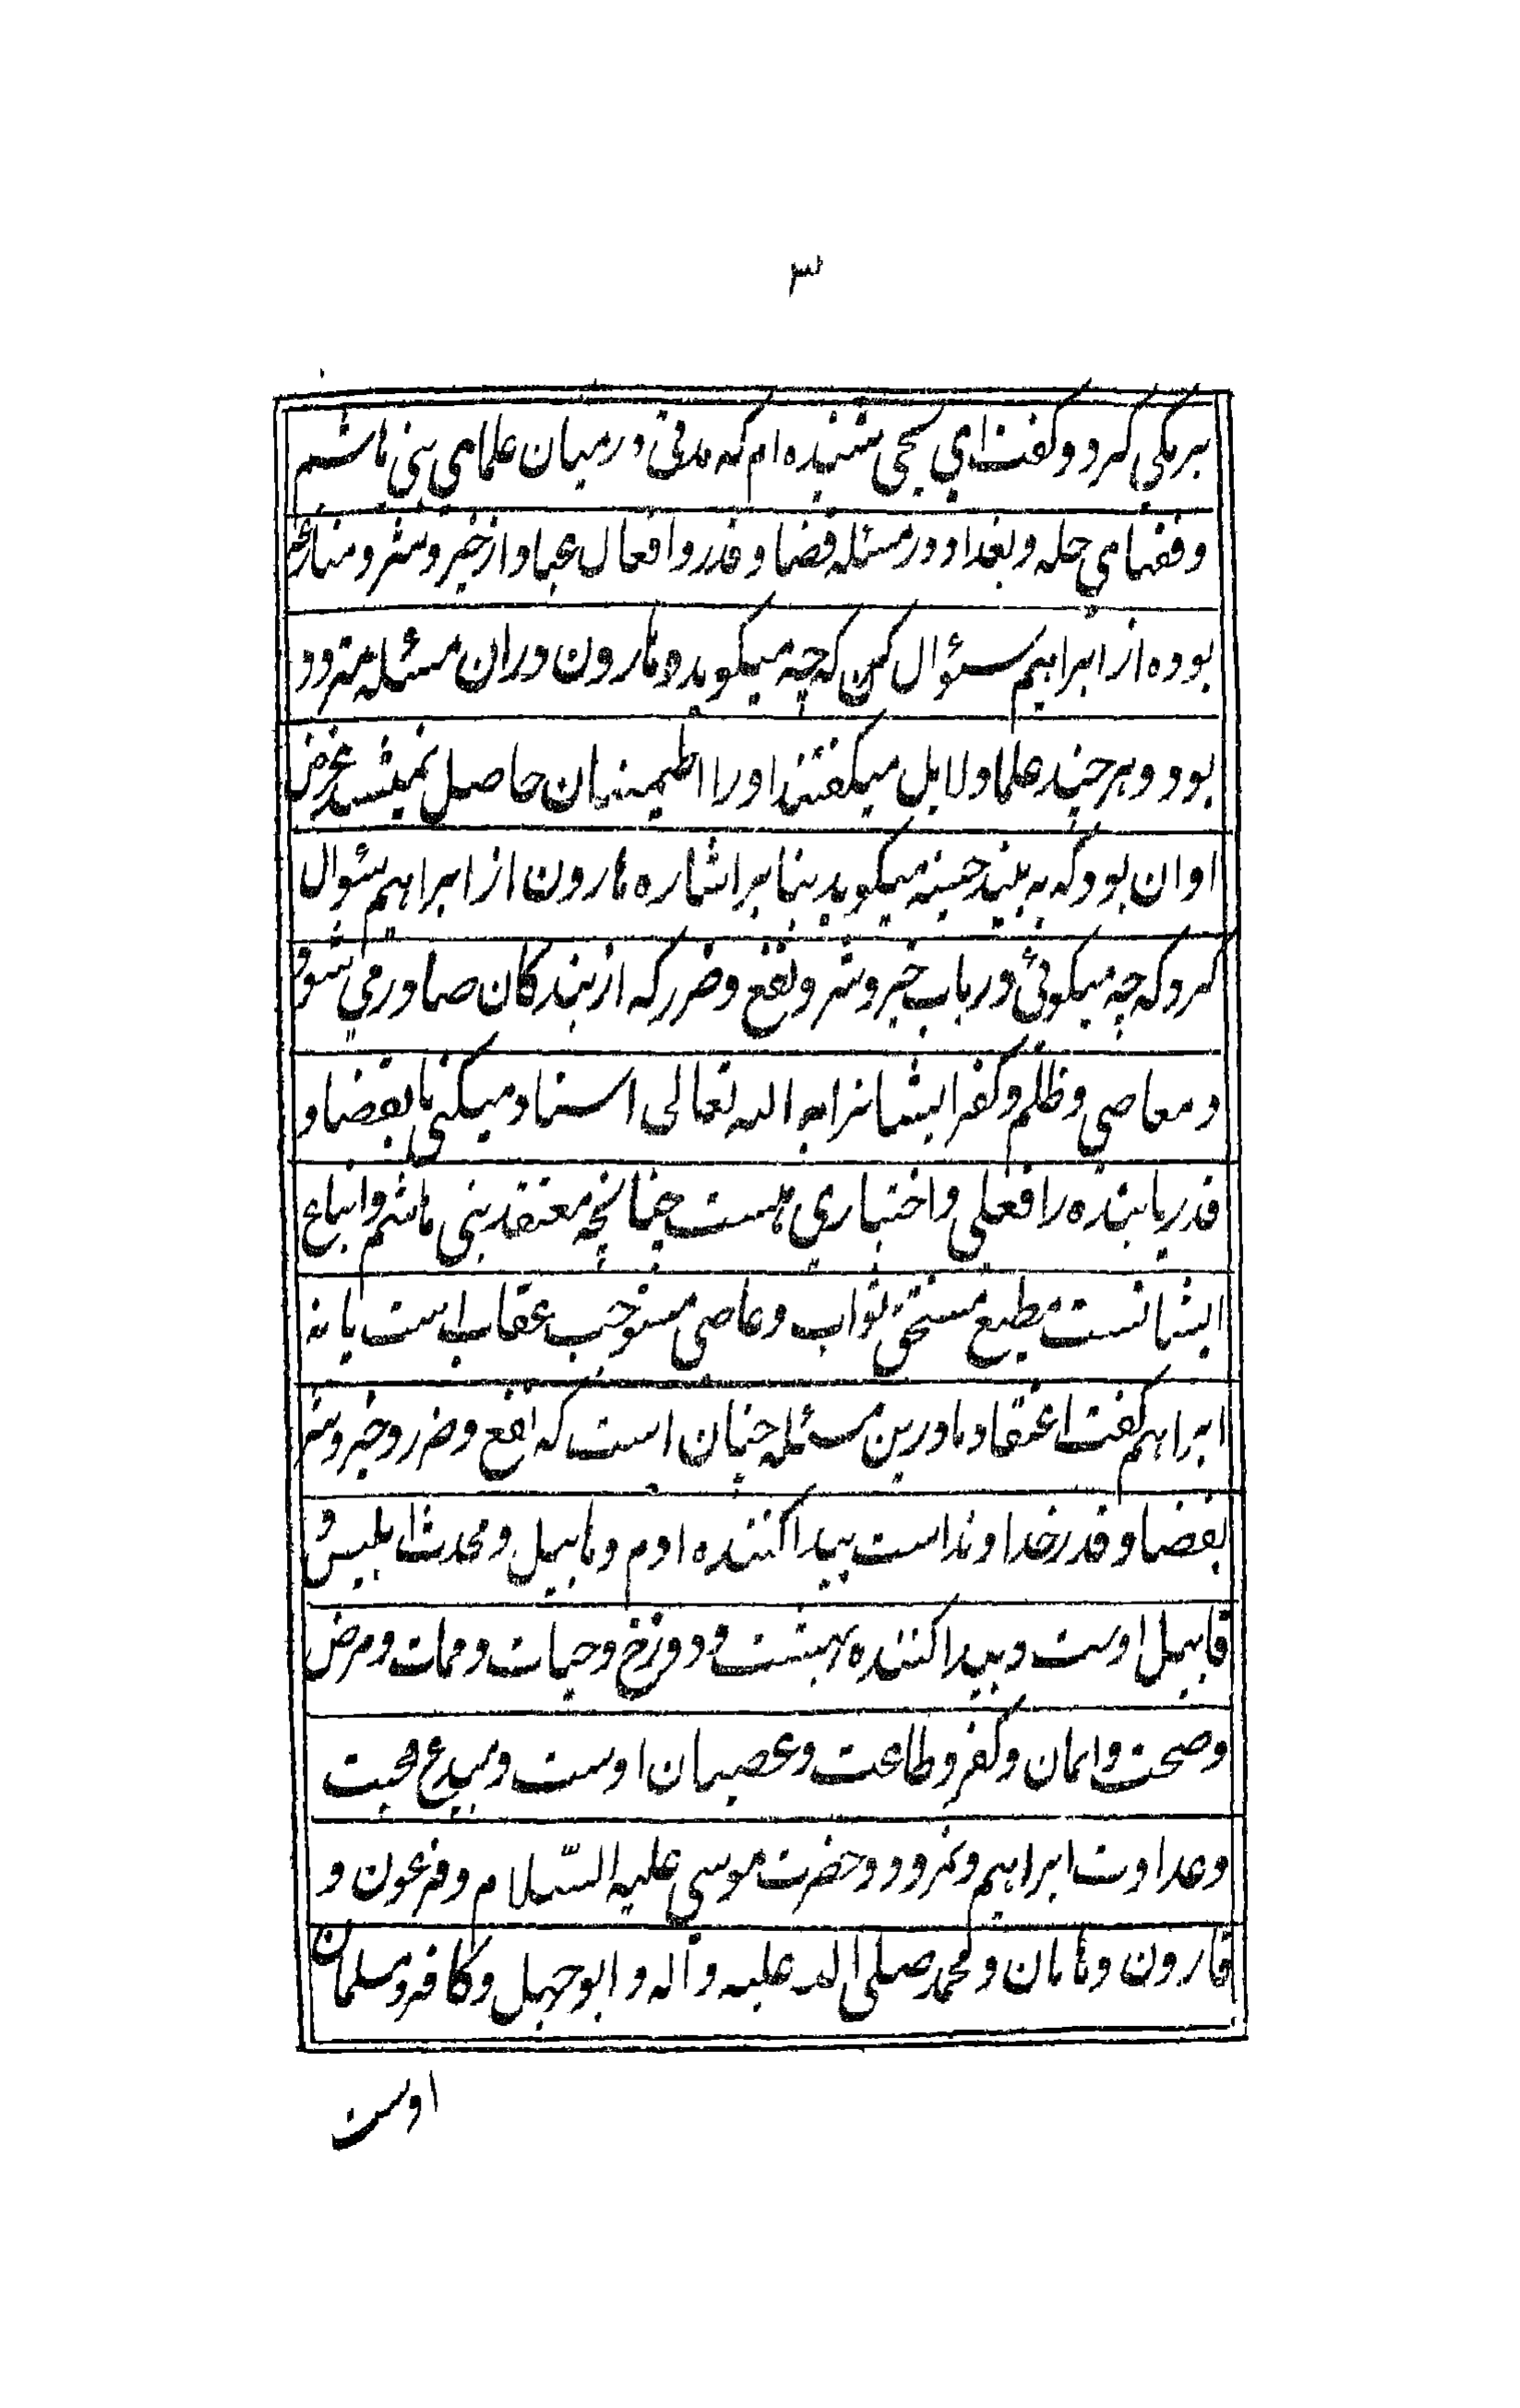 ۳
برمکی کرد و کفت ای یحیی شنیده ام که مدتی در میان علمای بنی هاشم
و فقهای حله و بغداد در مسئله قضا و قدر و افعال عباد از خیر و شر و منازعه
بوده از ابراهیم سئوال کن که چه میکوید و هارون دران مسئله متردد
بود و هر چند علما دلایل میکفتند او را اطمینان حاصل نمیشد غرض
او ان بود که به بیند حسنیه میکوید بنا بر اشاره هارون از ابراهیم سئوال
کرد که چه میکوئی در باب خیر و شر و نفع و ضرر که از بندکان صادر می شود
و معاصی و ظلم و کفر ایشانرا به الله تعالی اسناد میکنی یا بقضا و
قدر یا بنده را فعلی و اختیاری هست چنانچه معتقد بنی هاشم و اتباع
ایشانست مطیع مستحق ثواب و عاصی مستوجب عقاب است یا نه
ابراهیم کفت اعتقاد ما درین مسئله چنان است که نفع و ضرر و خیر و شر
بقضا و قدر خداوند است پیدا کننده ادم و هابیل و محدث ابلیس و
قابیل اوست و پیدا کننده بهشت و دوزخ و حیات و ممات و مرض
و صحت و ایمان و کفر و طاعت و عصیان اوست و مبدع محبت
و عداوت ابراهیم و نمرود و حضرت موسی علیه السّلام و فرعون و
قارون و هامان و محمد صلی الله علیه و آله و ابو جهل و کافر و مسلمان
اوست